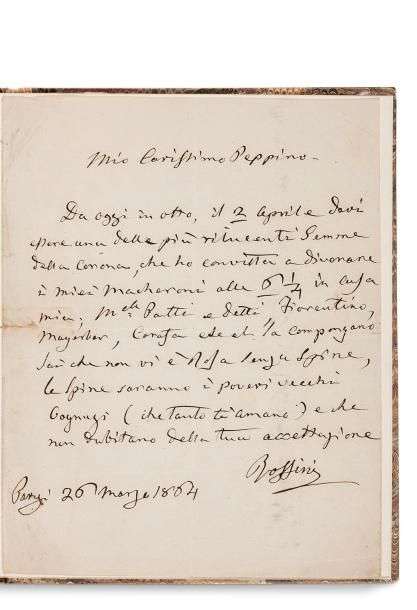 Mio Carissimo Peppino.
Da oggi in otto, il 2 Aprile devi
essere una delle più rilucenti Gemme
della Corona, che ho convitta a divorare
i miei Macharoni alle 6 1/4 in casa
mia; M.elle Patti e detti Fiorentino,
Mayerber, Carafa la compongano
Sai che non vi è Rosa senza Spine,
le Spine saranno i poveri vecchi
Cognugi (che tanto ti amano) e che
non dubitano della tua accettazione
Rossini
Parigi 26 Marzo 1864